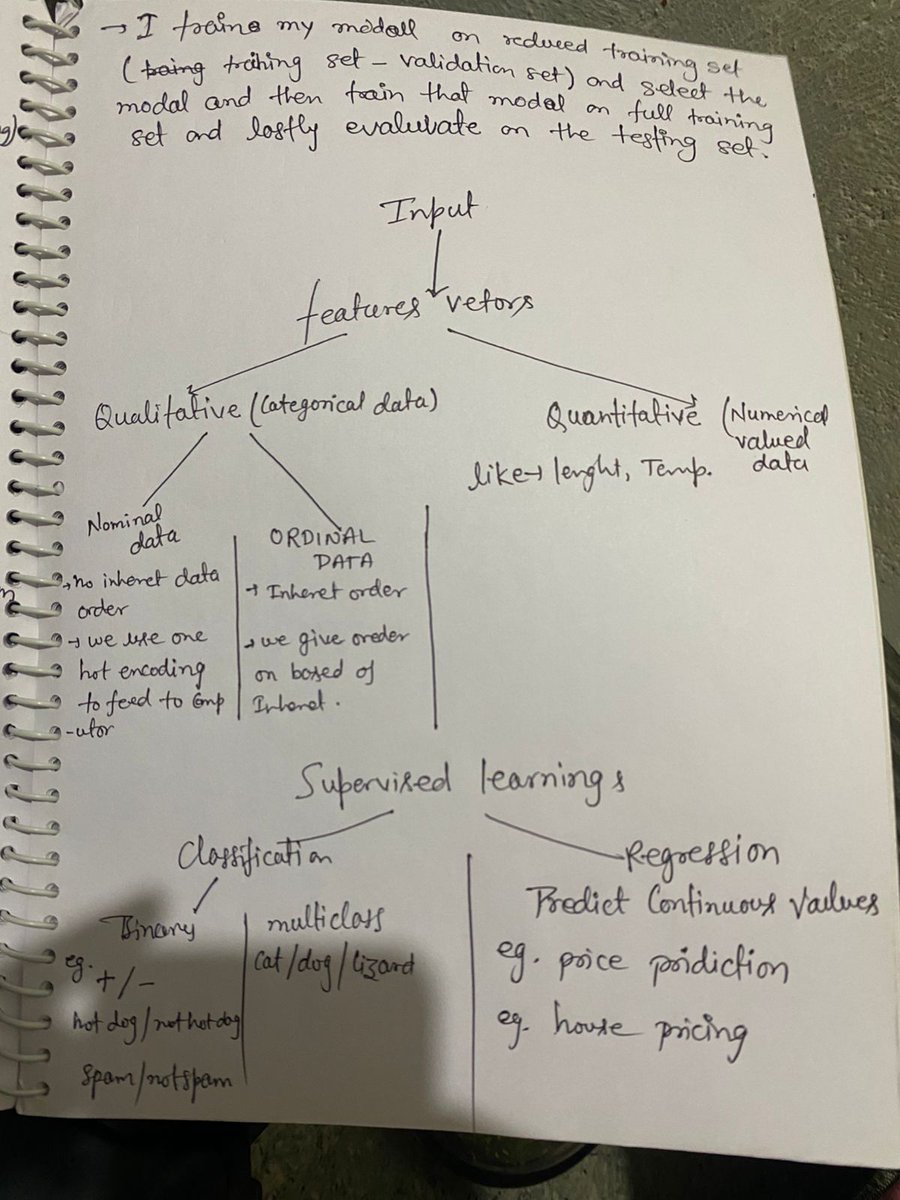 → I trains my modell on reduced training set
(traihing set - validation set) and select the
modal and then train that modal on full training
set and lastly evaluvate on the testing set.
Input
features vetors
Qualitative (Categorical data)
Quantitative (Numerical
valued
data
like→ lenght, Temp.
Nominal
data
→ no inheret data
order
→ we use one
hot encoding
to feed to Comp
-utor
ORDINAL
DATA
→ Inheret order
→ we give oreder
on based of
Inheret.
Supervised learnings
Classification
Binary
eg. +/-
hot dog/not hot dog
spam/not spam
multiclass
cat/dog/lizard
Regression
Predict Continuous Values
eg. price pridiction
eg. house pricing